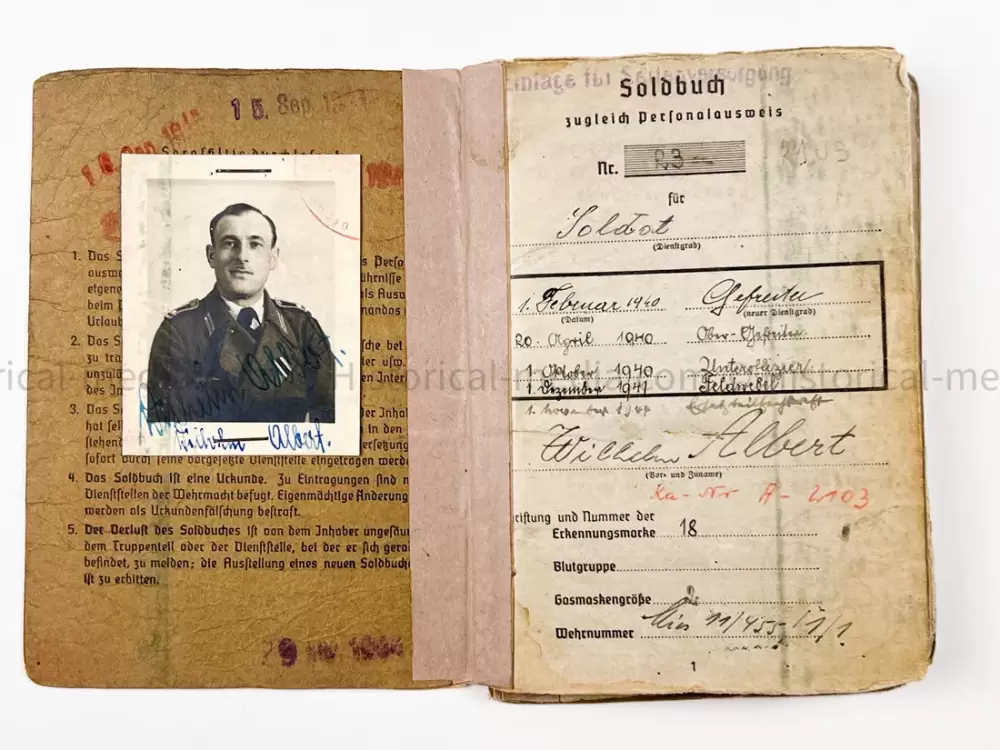 15. Sep.
1. Das S
ausw
eigene
beim
Urlaub
s Perso
ührnisse
als Ausw
mandos
2. Das S
zu tra
unzulä
des In
sche bei
ufw.
llen
Intere
3. Das S
hat sel
stehend
sofort durch seine vorgesetzte Dienststelle eingetragen werde
der Inhal
in den
ersetzung
4. Das Soldbuch ist eine Urkunde. Zu Eintragungen sind n
Dienststellen der Wehrmacht befugt. Eigenmächtige Änderung
werden als Urkundenfälschung bestraft.
5. Der Verlust des Soldbuches ist von dem Inhaber ungesäu
dem Truppenteil oder der Dienststelle, bei der er sich gera
befindet, zu melden; die Ausstellung eines neuen Soldbuc
ist zu erbitten.
Wilhelm Albert.
Wilhelm Albert.
29
Einlage für Seifenversorgung
Soldbuch
zugleich Personalausweis
Nr. 23
für
Soldat
(Dienstgrad)
1. Februar 1940 Gefreiter
(Datum) (neuer Dienstgrad)
20. April 1940 Ober-Gefreiter
1. Oktober 1940 Unteroffizier
1. Dezember 1941 Feldwebel
1. November 1944
Wilhelm Albert
(Vor- und Zuname)
Ka-Nr A-2103
riftung und Nummer der
Erkennungsmarke 18
Blutgruppe
Gasmaskengröße 2
Wehrnummer 11/455/1/1
1
Historical-media